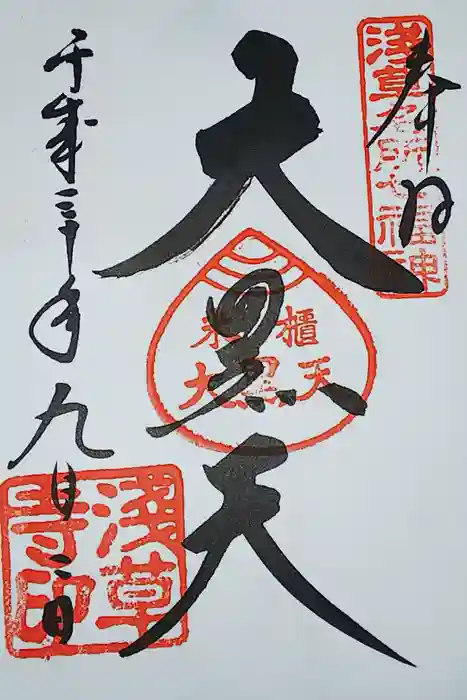 奉拝
浅草名所七福神
大黒天
米櫃
大黒天
平成三十年九月二日
浅草
寺印